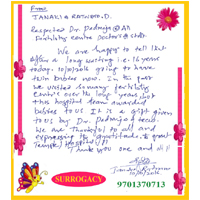 From
TANAKU & RATNAM.D.
Respected Dr. Padmaja @AR
Fertility centre Doctors & staff.
We are happy to tell that
after a long waiting i.e. 16 years
today. 10/10/2016 going to have
twin babies now. In the past
we visited so many fertility
centres over the long years
this hospital team awarded
babies to us It is a gift given
to us by Dr. Padmaja & team.
We are thankful to all and
expressing the gratitude to great
Temple (Hospital)!!
Thank you one and all!!
10/10/2016
SURROGACY
9701370713